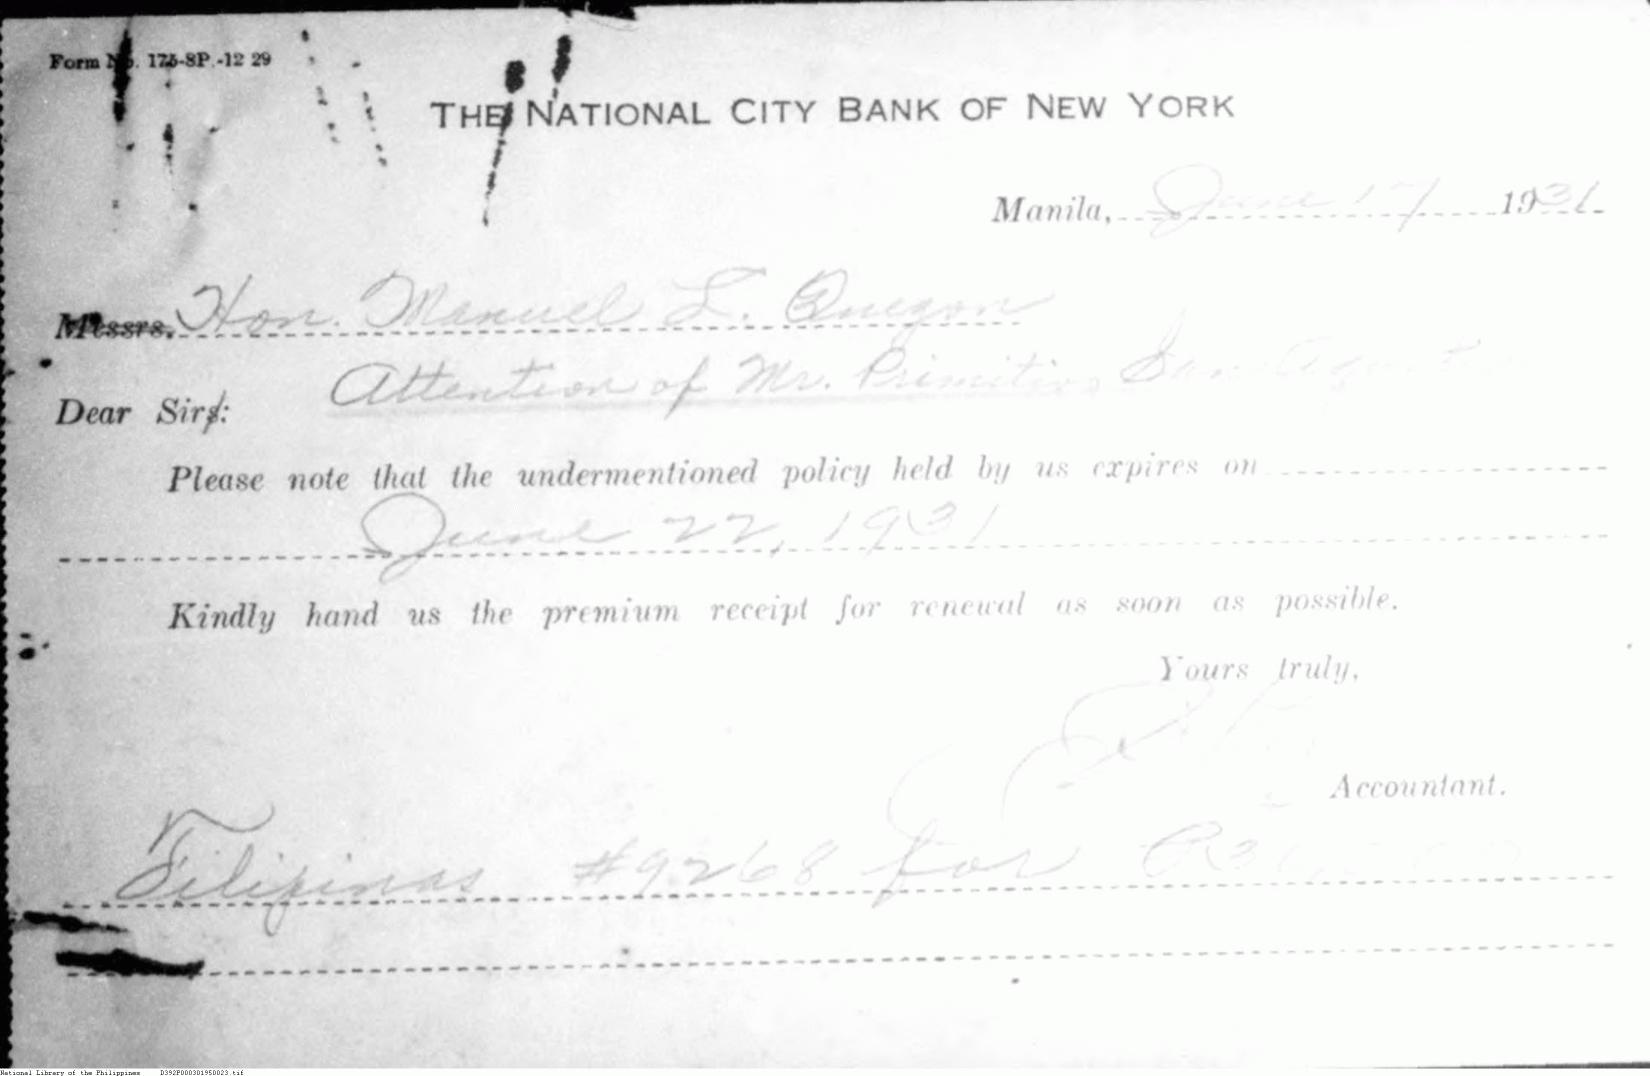 Form No. 175-8P.-12 29
THE NATIONAL CITY BANK OF NEW YORK
Manila, June 17 1931
Messrs. Hon. Manuel L. Quezon
Attention of Mr. Primitivo San Agustin
Dear Sirs:
Please note that the undermentioned policy held by us expires on
June 22, 1931
Kindly hand us the premium receipt for renewal as soon as possible.
Yours truly,
Accountant.
Filipinas #9268 for
National Library of the Philippines D392P000301950023.tif